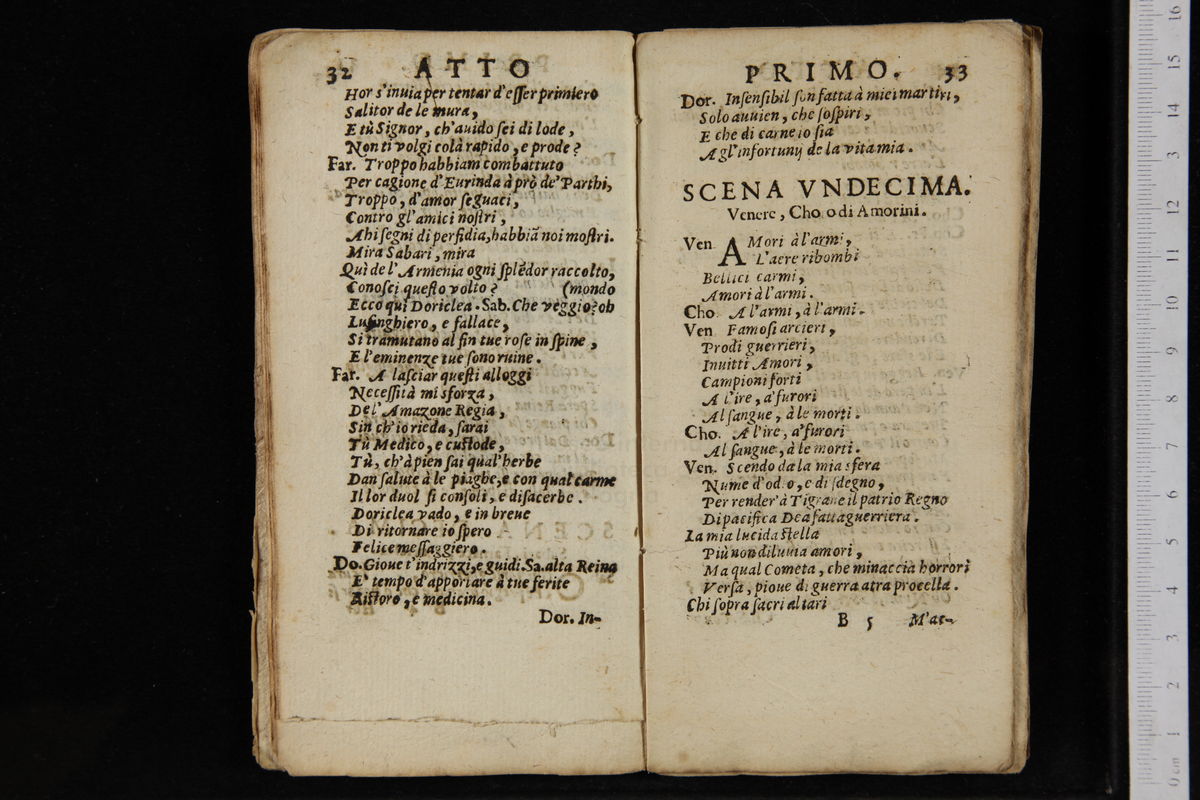 32 ATTO
Hor s'inuia per tentar d'esser primiero
Salitor de le mura,
E tù Signor, ch'auido sei di lode,
Non ti volgi colà rapido, e prode?
Far. Troppo habbiam combattuto
Per cagione d'Eurinda à prò de' Parthi,
Troppo, d'amor seguaci,
Contro gl'amici nostri,
Ahi segni di perfidia, habbiā noi mostri.
Mira Sabari, mira
Quì de l'Armenia ogni splēdor raccolto,
Conosci questo volto? (mondo
Ecco quì Doriclea. Sab. Che veggio? oh
Lusinghiero, e fallace,
Si tramutano al fin tue rose in spine,
E l'eminenze tue sono ruine.
Far. A lasciar questi alloggi
Necessità mi sforza,
De l'Amazone Regia,
Sin ch'io rieda, sarai
Tù Medico, e custode,
Tù, ch'à pien sai qual'herbe
Dan salute à le piaghe, e con qual carme
Il lor duol si consoli, e disacerbe.
Doriclea vado, e in breue
Di ritornare io spero
Felice messaggiero.
Do. Gioue t'indrizzi, e guidi. Sa. alta Reina
E' tempo d'apportare à tue ferite
Ristoro, e medicina.
Dor. In-
PRIMO. 33
Dor. Insensibil son fatta à miei martiri,
Solo auuien, che sospiri,
E che di carne io sia
A gl'infortunij de la vita mia.
SCENA VNDECIMA.
Venere, Cho o di Amorini.
Ven AMori à l'armi,
L'aere ribombi
Bellici carmi,
Amori à l'armi.
Cho. A l'armi, à l'armi.
Ven Famosi arcieri,
Prodi guerrieri,
Inuitti Amori,
Campioni forti
A l'ire, a'furori
Al sangue, à le morti.
Cho. A l'ire, a'furori
Al sangue, à le morti.
Ven. Scendo da la mia sfera
Nume d'odio, e di sdegno,
Per render'à Tigrane il patrio Regno
Di pacifica Dea fatta guerriera.
La mia lucida stella
Più non diluuia amori,
Ma qual Cometa, che minaccia horrori
Versa, pioue di guerra atra procella.
Chi sopra sacri altari
B 5 M'ac-